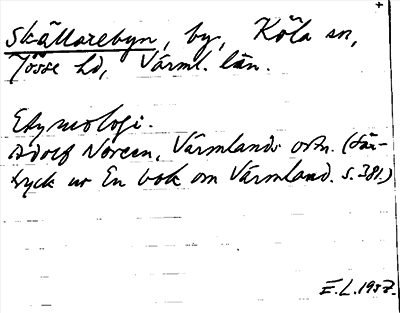 Skällarebyn, by, Köla sn,
Jösse hd, Värml. län.
Etymologi.
Adolf Noreen, Värmlands ortn. (Sär-
tryck ur En bok om Värmland. S. 381.)
E.L. 1937.